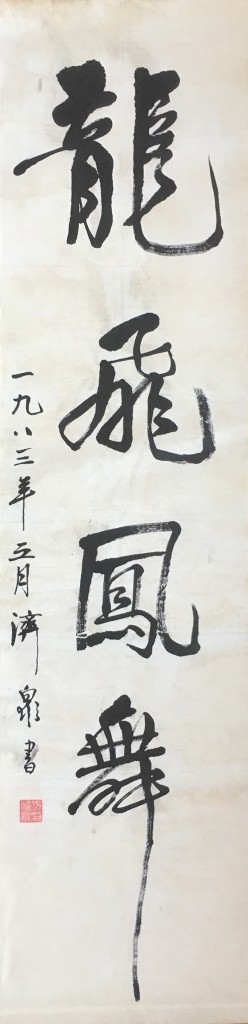 龍飛鳳舞
一九八三年五月濟泉書